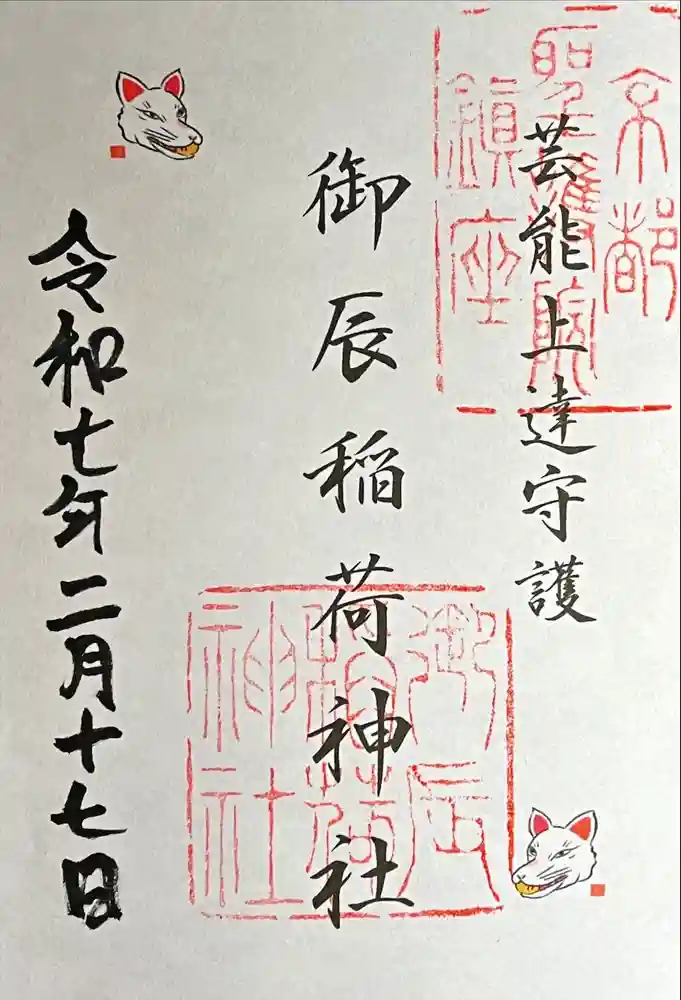 芸能上達守護
御辰稲荷神社
令和七年二月十七日
京都
聖護院
鎮座
御辰
稲荷
神社